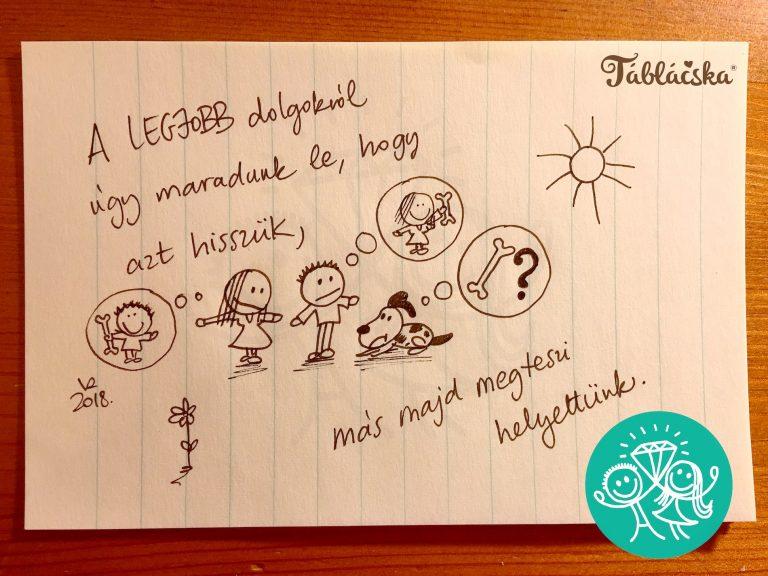 Táblácska®
A LEGJOBB dolgokról
úgy maradunk le, hogy
azt hisszük,
?
más majd megteszi
helyettünk.
2018.